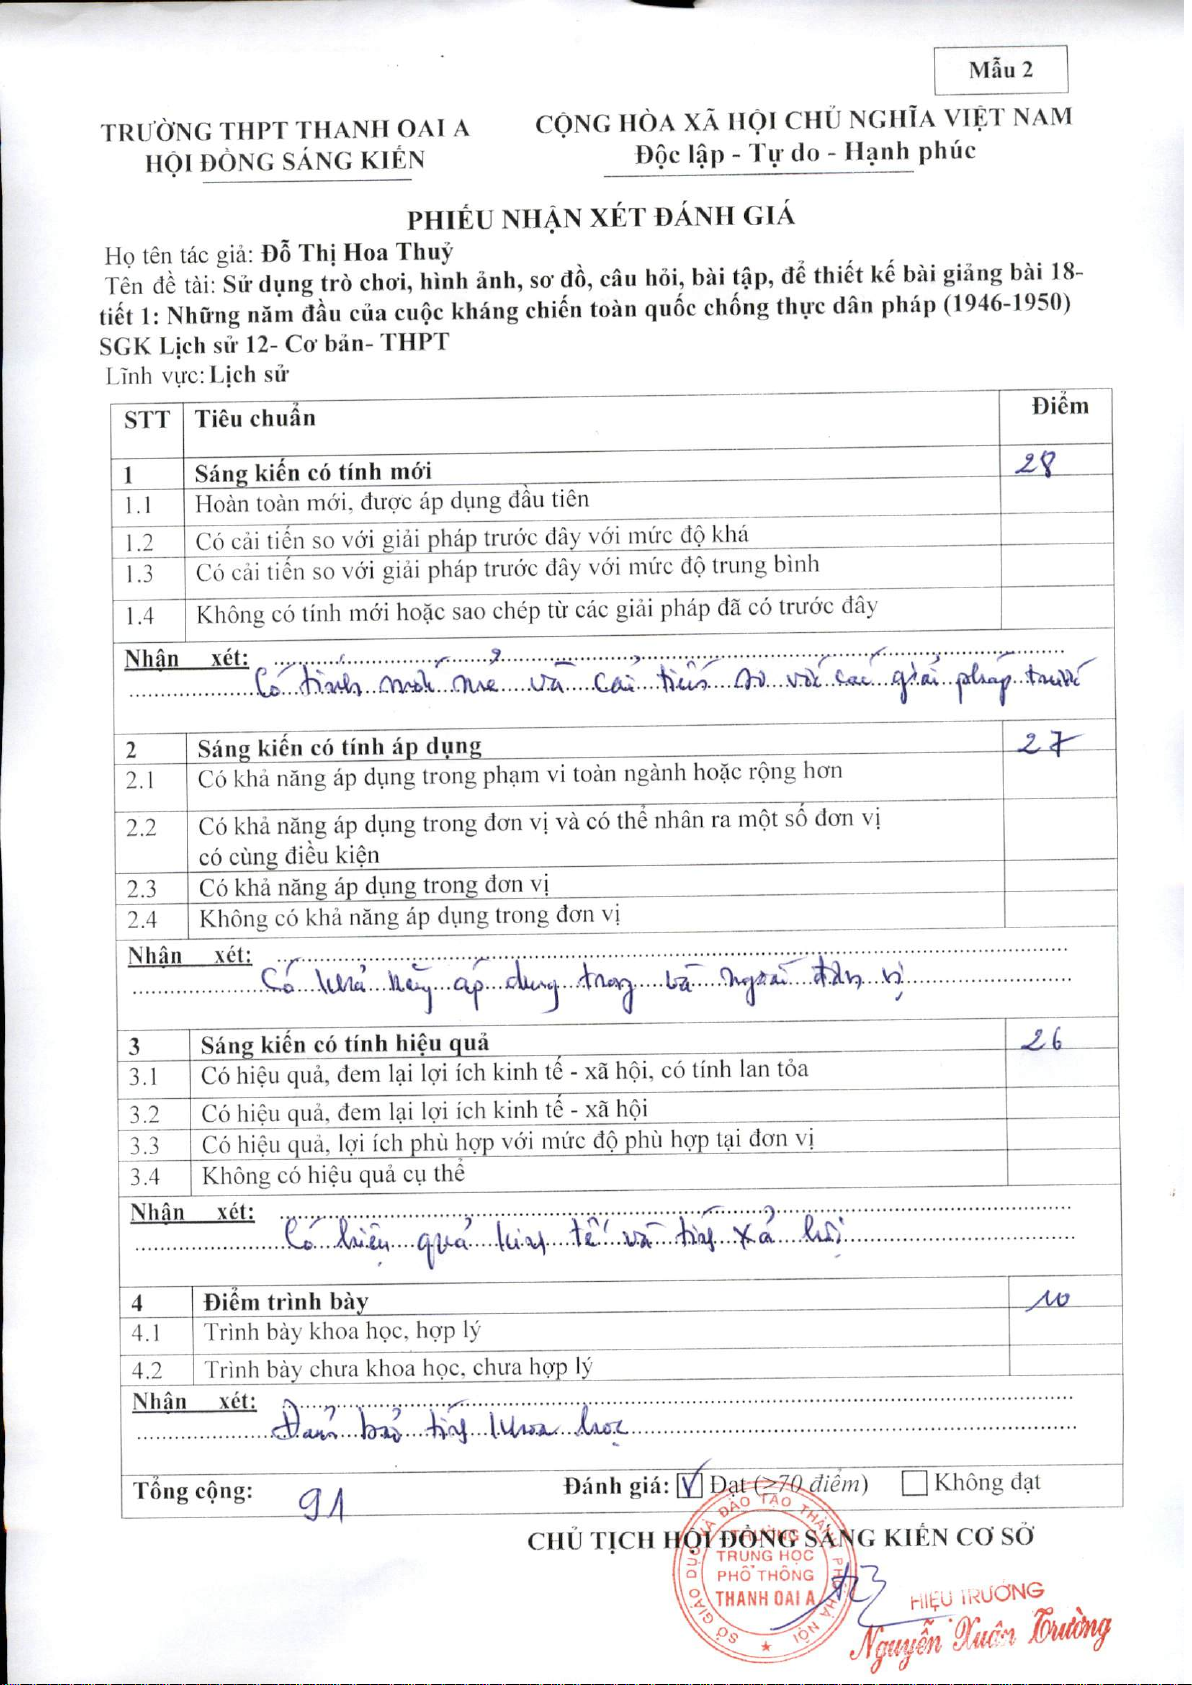 Mẫu 2
TRƯỜNG THPT THANH OAI A
HỘI ĐỒNG SÁNG KIẾN
CỘNG HÒA XÃ HỘI CHỦ NGHĨA VIỆT NAM
Độc lập - Tự do - Hạnh phúc
PHIẾU NHẬN XÉT ĐÁNH GIÁ
Họ tên tác giả: Đỗ Thị Hoa Thuỷ
Tên đề tài: Sử dụng trò chơi, hình ảnh, sơ đồ, câu hỏi, bài tập, để thiết kế bài giảng bài 18-
tiết 1: Những năm đầu của cuộc kháng chiến toàn quốc chống thực dân pháp (1946-1950)
SGK Lịch sử 12- Cơ bản- THPT
Lĩnh vực: Lịch sử
STT Tiêu chuẩn Điểm
1 Sáng kiến có tính mới 28
1.1 Hoàn toàn mới, được áp dụng đầu tiên
1.2 Có cải tiến so với giải pháp trước đây với mức độ khá
1.3 Có cải tiến so với giải pháp trước đây với mức độ trung bình
1.4 Không có tính mới hoặc sao chép từ các giải pháp đã có trước đây
Nhận xét:
Có tính mới mẻ và cải tiến so với các giải pháp trước
2 Sáng kiến có tính áp dụng 27
2.1 Có khả năng áp dụng trong phạm vi toàn ngành hoặc rộng hơn
2.2 Có khả năng áp dụng trong đơn vị và có thể nhân ra một số đơn vị
có cùng điều kiện
2.3 Có khả năng áp dụng trong đơn vị
2.4 Không có khả năng áp dụng trong đơn vị
Nhận xét:
Có khả năng áp dụng trong và ngoài đơn vị
3 Sáng kiến có tính hiệu quả 26
3.1 Có hiệu quả, đem lại lợi ích kinh tế - xã hội, có tính lan tỏa
3.2 Có hiệu quả, đem lại lợi ích kinh tế - xã hội
3.3 Có hiệu quả, lợi ích phù hợp với mức độ phù hợp tại đơn vị
3.4 Không có hiệu quả cụ thể
Nhận xét:
Có hiệu quả kinh tế và tính xã hội
4 Điểm trình bày 10
4.1 Trình bày khoa học, hợp lý
4.2 Trình bày chưa khoa học, chưa hợp lý
Nhận xét:
Đảm bảo tính khoa học
Tổng cộng: 91 Đánh giá: Đạt (≥70 điểm) Không đạt
CHỦ TỊCH HỘI ĐỒNG SÁNG KIẾN CƠ SỞ
SỞ GIÁO DỤC VÀ ĐÀO TẠO THÀNH PHỐ HÀ NỘI
TRƯỜNG
TRUNG HỌC
PHỔ THÔNG
THANH OAI A
HIỆU TRƯỞNG
Nguyễn Xuân Trường